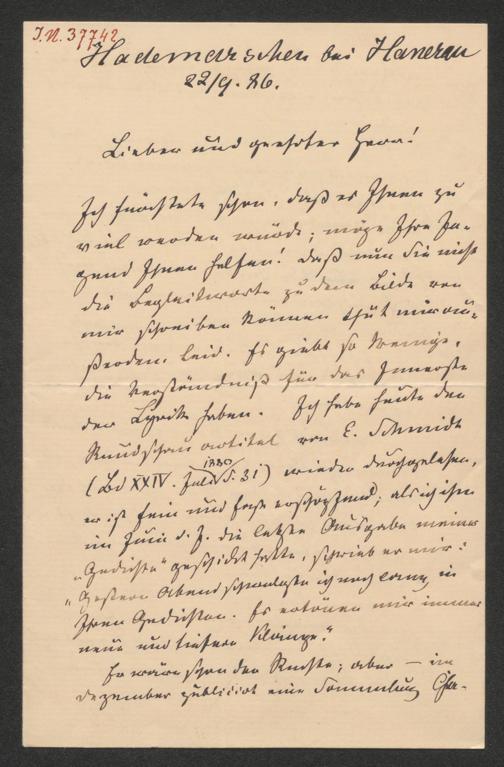 I.N. 37742
Hademarschen bei Hanerau
22/9. 86.
Lieber und geehrter Herr!
Ich fürchtete schon, daß es Ihnen zu
viel werden würde; möge Ihre Ju-
gend Ihnen helfen! Daß nun Sie nicht
die Begleitworte zu dem Bilde von
mir schreiben können thut mir au-
ßerorden. leid. Es giebt so Wenige,
die Verständniß für das Innerste
der Lyrik haben. Ich habe heute den
Rundschauartikel von E. Schmidt
(Bd XXIV. Juli 1880 S. 31) wieder durchgelesen,
er ist fein und fast erschöpfend; als ich ihm
im Juni d. J. die letzte Ausgabe meiner
„Gedichte" geschickt hatte, schrieb er mir:
„Gestern Abend schon laste ich noch lang in
Ihren Gedichten. Es ertönen mir immer
neue und tiefere Klänge."
Er wäre schon der Rechte; aber — im
Dezember publicirt eine Sammlung Cha-